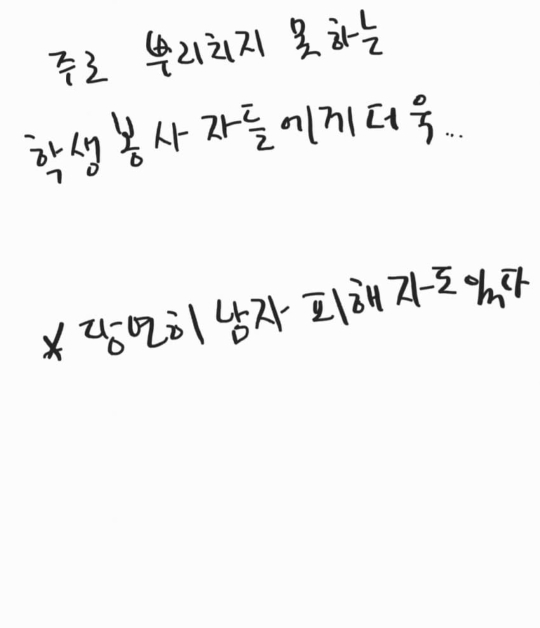 주로 뿌리치지 못하는
학생봉사자들에게 더욱...
* 당연히 남자 피해자도 있다